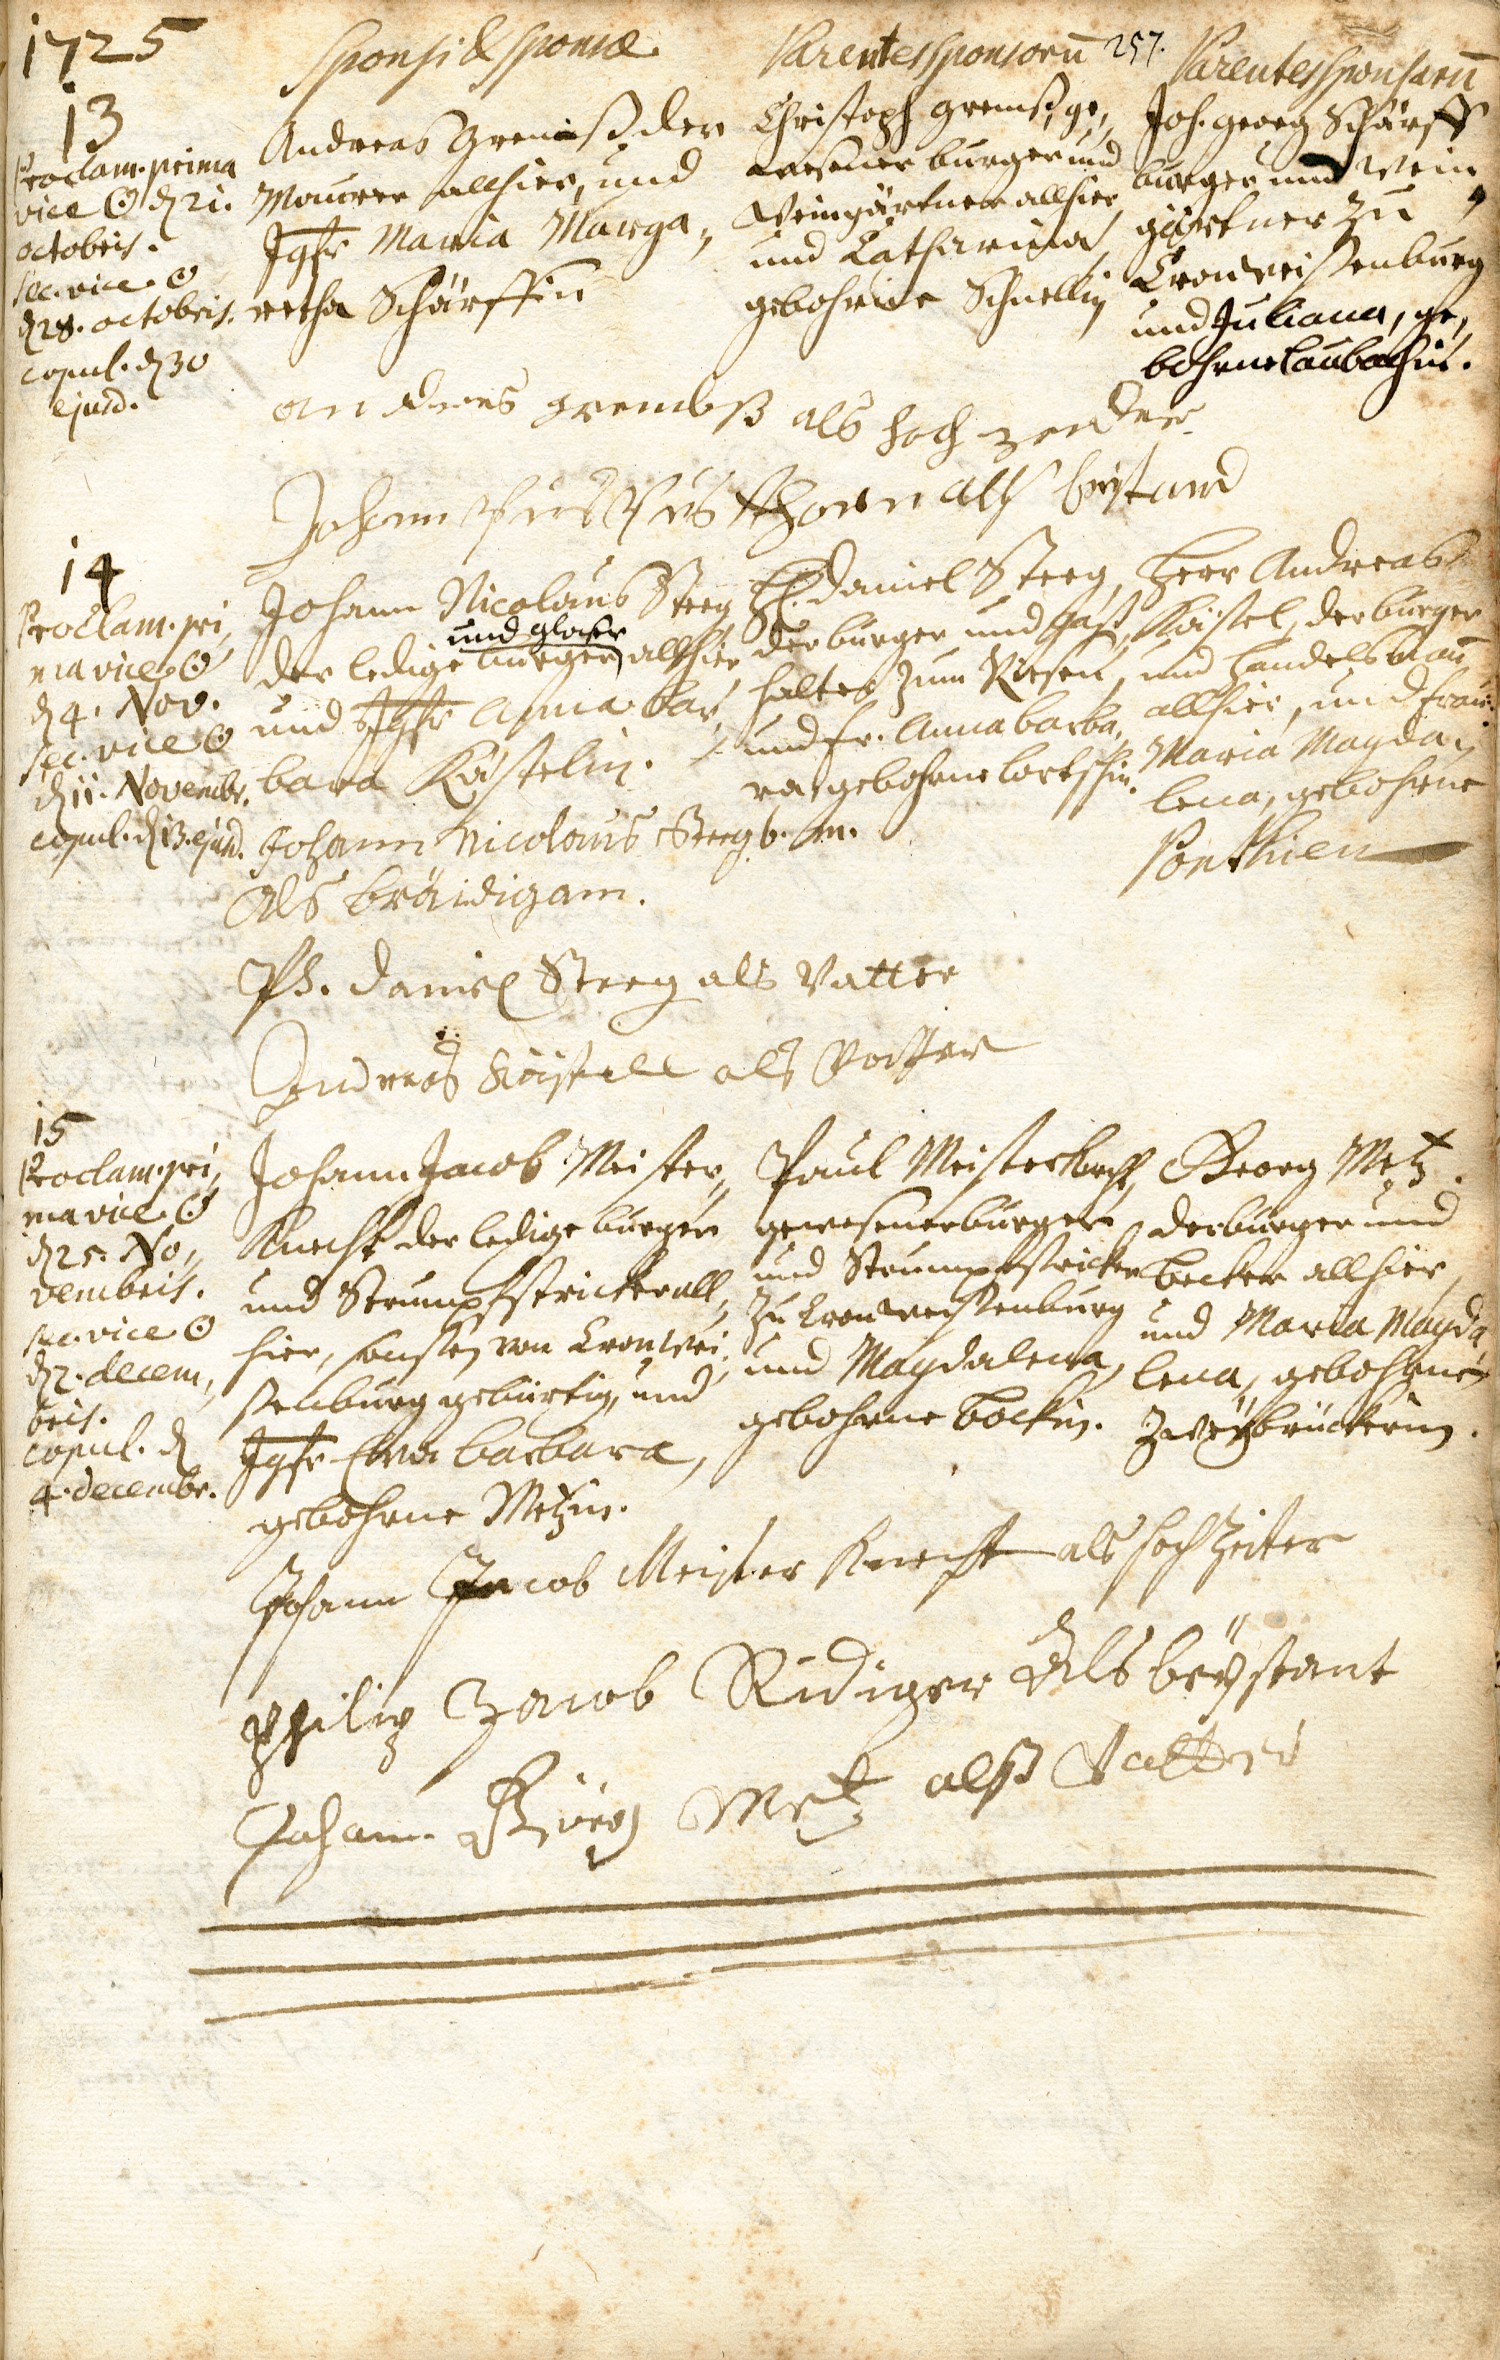 1725
Sponsi & Sponsæ
Parentes Sponsorū
257.
Parentes Sponsarū
13
Proclam. prima
vice ☉ d 21.
octobris.
sec. vice. ☉
d 28. octobris.
copul. d 30
ejusd.
Andreas Gremß der
Maurer allhier, und
Jgfr Maria Marga,,
retha Schärffin
Christoph Gremß, ge,
wesener burger und
Weingärtner allhier
und Catharina,
gebohrne Schnellin
Joh. Georg Schärff
burger und Wein,
gärtner zu
Cronweissenburg
und Juliana, ge,
bohrne Laubachin.
andreas grembß als hoch zeider
Johann als beystand
14
Proclam. pri,
ma vice ☉
d 4. Nov.
sec. vice ☉
d 11. Novembr.
copul. d 13. ejusd.
Johann Nicolaus Steeg
und glaser
der ledige burger allhier
und Jgfr Anna bar,
bara Köstelin.
H. Daniel Steeg,
der burger und Gast,
halter zum Riesen,
und Fr. Anna barba,
ra, gebohrne
Herr Andreas
Köstel, der burger
und Handelsmañ
allhier, und Frau
Maria Magda,
lena, gebohrne
Ponthien
Johann Nicolaus Steeg b. m.
Als bräidigam.
Ph. Daniel Steeg als Vatter
Andreas Köistell als Vatter
15
Proclam. pri,
ma vice ☉
d 25. No,
vembris.
sec. vice ☉
d 2. decem,
bris.
copul. d
4. decembr.
Johann Jacob Meister,,
Knecht der ledige burger
und Strumpfstricker all,
hier, sonsten von Cronwei,
ssenburg gebürtig, und
Jgfr Eva barbara,
gebohrne Metzin.
Paul Meisterknecht,
gewesener burger
und Strumpfstricker
zu Cronweissenburg
und Magdalena,
gebohrne Bockin.
Georg Metz
der burger und
becker allhier,
und Maria Magda,
lena, gebohrne
Zweybrückerin.
Johann Jacob Meister Knecht als hochzeiter
Philip Jacob Rüdiger Als beystant
Johann Görg Metz alß Vatter